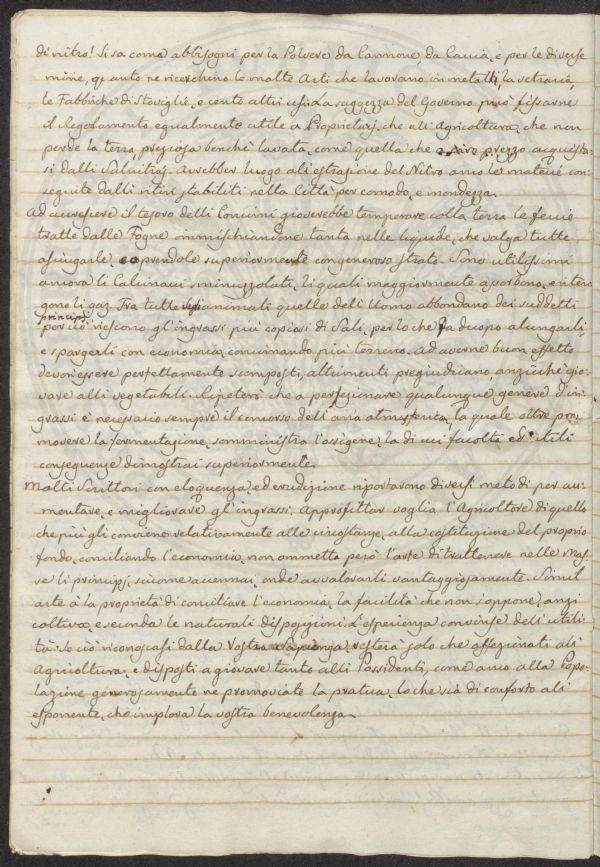 di nitro! Si sa come abbisogni per la Polvere da Cannone, da Caccia, e per le diverse
mine, quanto ne ricerchino le molte Arti che lavorano in metalli, la vetraria,
le Fabbriche di Stoviglie, e cento altri usi; la saggezza del Governo può fissarne
il regolamento egualmente utile a Proprietarj, che all'Agricoltura, che non
perde la terra, preziosa benché lavata, come quella che a prezzo acquista-
si dalli Salnitraj. Avrebber luogo all'estrazione del Nitro anco le materie con-
seguite dalli ritiri stabiliti nella Città per comodo, e mondezza.
Ad accrescere il tesoro delli Concimi gioverebbe temperare colla terra le feccie
tratte dalle Fogne immischiandone tanta nelle liquide, che valga tutte
asciugarle, coprendole superiormente con generoso strato. Sono utilissimi
ancora li Calcinacci sminuzzolati, li quali maggiormente assorbono, e riten-
gono li gaz. Tra tutte animali quelle dell'Uomo abbondano dei suddetti
principj
perciò riescono gl'ingrassi più copiosi di Sali, per lo che fa duopo alungarli,
e spargerli con economia, concimando più terreno. Ad averne buon effetto
devon essere perfettamente scomposti, altrimenti pregiudicano anzicchè gio-
vare alli vegetabili. Ripeterò che a perfezionare qualunque genere d'in-
grassi è necessario sempre il concorso dell'aria atmosferica, la quale oltre pro-
movere la fermentazione, somministra l'ossigene, la di cui facoltà ed utili
conseguenze dimostrai superiormente.
Molti Scrittori con eloquenza, ed erudizione riportarono diversi metodi per au-
mentare, e migliorare gl'ingrassi. Approfittar voglia l'Agricoltore di quello
che più gli conviene relativamente alle circostanze, alla costituzione del proprio
fondo, conciliando l'economia, non ommetta però l'arte di trattenere nelle Mas-
se li principj, siccome accennai, onde avvalorarli vantaggiosamente. Simil
arte à la proprietà di conciliare l'economia, la facilità che non s'oppone, anzi
coltiva, e seconda le naturali disposizioni. L'esperienza convinse dell'utili
tà: se ciò riconoscasi dalla Vostra Sapienza, resterà solo che affezionati all'
Agricoltura, e disposti a giovare tanto alli Possidenti, come anco alla Popo-
lazione generosamente ne promoviate la pratica, lo che sia di conforto all'
esponente, che implora la vostra benevolenza.